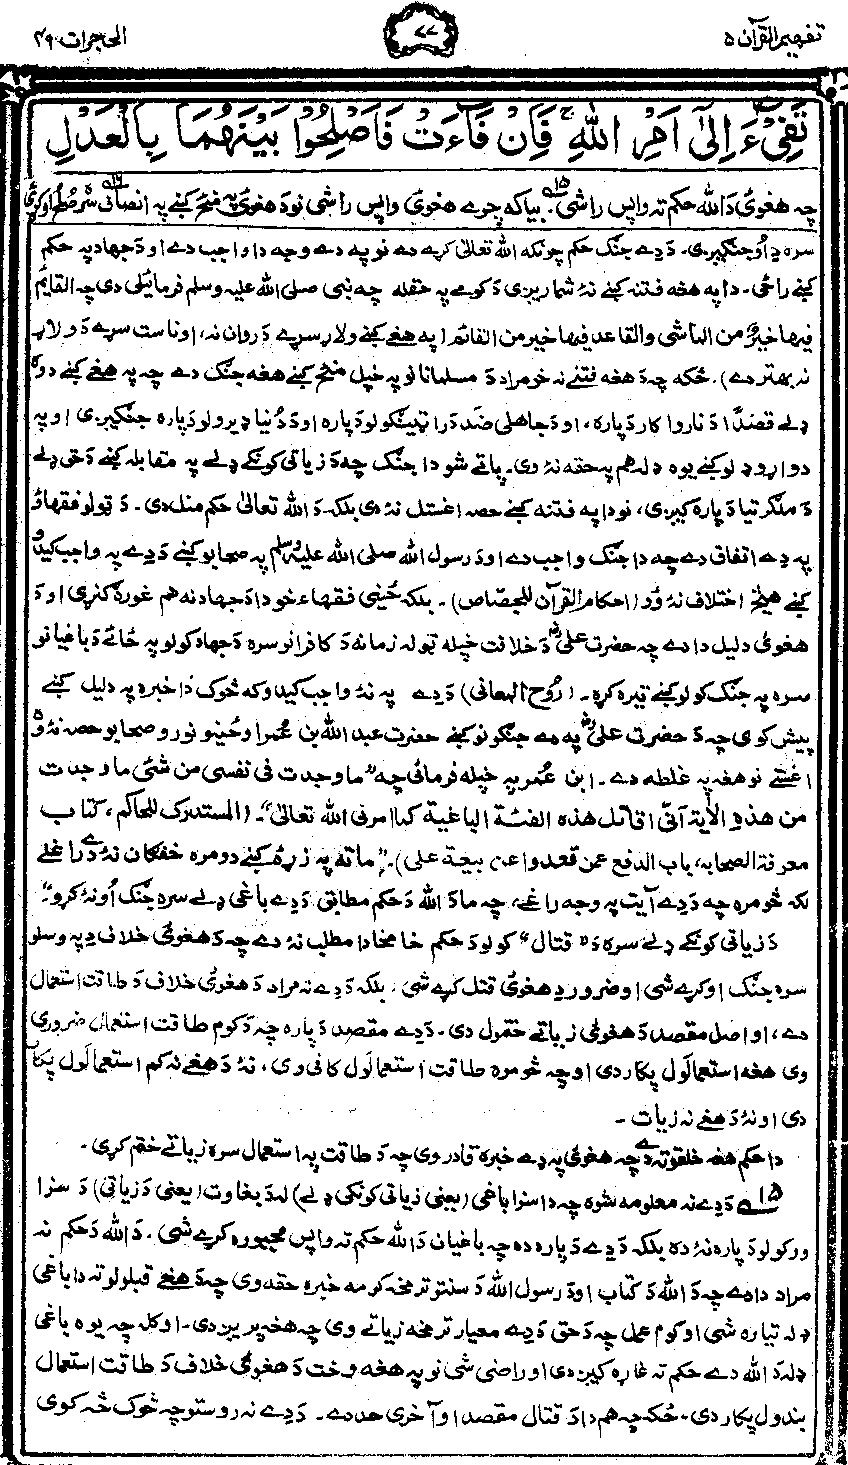 تفهيم القرآن ۵
۷۷
الحجرات ۴۹
تَفِيْٓءَ اِلٰٓى اَمْرِ اللّٰهِ ۚ فَاِنْ فَآءَتْ فَاَصْلِحُوْا بَيْنَهُمَا بِالْعَدْلِ
چه هغوئ دَ الله حكم ته واپس راشی ۱۵ه. بيا كه چرے هغوئ واپس راشی نو دَ هغوئ په منځ كښے په انصاف ۱۶ه سره صلح اوكړئ
سره دِ اوجنګيږی۔ دَ دے جنګ حكم چونكه الله تعالیٰ كړے دے نو په دے وجه دا واجب دے او دَ جهاد په حكم
كښے راځی۔ دا په هغه فتنه كښے نۀ شماريږی دَ كومے په حقله چه نبی صلی الله عليه وسلم فرمائيلی دی چه القائم
فيها خير من الماشی والقاعد فيها خير من القائم (په هغے كښے ولاړ سړے دَ روان نه، او ناست سړے دَ ولاړ
نه بهتر دے). ځكه چه دَ هغه فتنے نه خو مراد دَ مسلمانانو په خپل منځ كښے هغه جنګ دے چه په هغے كښے دواړه
ډلے قصداً دَ ناروا كار دَ پاره، او دَ جاهلی ضد دَ راټينګولو دَ پاره او دَ دُنيا ډيرولو دَ پاره جنګيږی او په
دواړو ډلو كښے يوه ډله هم په حقه نۀ وی۔ پاتے شو دا جنګ چه دَ زياتی كونكے ډلے په مقابله كښے دَ حق ډلے
دَ ملګرتيا دَ پاره كيږی، نو دا په فتنه كښے حصه اخستل نۀ دی بلكه دَ الله تعالیٰ حكم منل دی۔ دَ ټولو فقهاؤ
په دے اتفاق دے چه دا جنګ واجب دے او دَ رسول الله صلی الله عليه وسلم په صحابو كښے دَ دے په واجب كيدو
كښے هيڅ اختلاف نۀ وو (احكام القرآن للجصّاص)۔ بلكه ځينی فقهاء خو دا دَ جهاد نه هم غوره ګنړی او دَ
هغوئ دليل دا دے چه حضرت علیؓ دَ خلافت خپله ټوله زمانه دَ كافرانو سره دَ جهاد كولو په ځائے دَ باغيانو
سره په جنګ كولو كښے تيره كړه۔ (رُوح المعانی) دَ دے په نۀ واجب كيدو كه څوک دا خبره په دليل كښے
پيش كوی چه دَ حضرت علیؓ په دے جنګونو كښے حضرت عبد الله بن عُمر او ځينو نورو صحابو حصه نۀ وه
اخستے نو هغه په غلطه دے۔ ابن عُمر په خپله فرمائی چه "ما وجدت فی نفسی من شئ ما وجدت
من هذه الأية أنّی لم اقاتل هذه الفئة الباغية كما امرنی الله تعالیٰ"۔ (المستدرک للحاكم، كتاب
معرفة الصحابه، باب الدفع عمن قعدوا عن بيعة علی)۔ "ماته په زړۀ كښے دومره خفګان نۀ دے راغلے
لكه څومره چه دَ دے آيت په وجه راغے، چه ما دَ الله دَ حكم مطابق دَ دے باغی ډلے سره جنګ اونۀ كړو"۔
دَ زياتی كونكے ډلے سره دَ "قتال" كولو دَ حكم خامخا دا مطلب نۀ دے چه دَ هغوئ خلاف دِ په وسلو
سره جنګ اوكړے شی او ضرور دِ هغوئ قتل كړے شی، بلكه دَ دے نه مراد دَ هغوئ خلاف دَ طاقت استعمال
دے، او اصل مقصد دَ هغوئ زياتے ختمول دی۔ دَ دے مقصد دَ پاره چه دَ كوم طاقت استعمال ضروری
وی هغه استعمالول پكار دی او چه څومره طاقت استعمالول كافی وی، نۀ دَ هغے نه كم استعمالول پكار
دی او نۀ دَ هغے نه زيات۔
دا حكم هغه خلقو ته دے چه هغوئ په دے خبره قادر وی چه دَ طاقت په استعمال سره زياتے ختم كړی۔
۱۵ه دَ دے نه معلومه شوه چه دا سزا باغی (يعنی زياتی كونكی ډلے) له دَ بغاوت (يعنی دَ زياتی) دَ سزا
وركولو دَ پاره نۀ ده بلكه دَ دے دَ پاره ده چه باغيان دَ الله حكم ته واپس مجبوره كړے شی۔ دَ الله دَ حكم نه
مراد دا دے چه دَ الله دَ كتاب او دَ رسول الله دَ سنتو ترمخه كومه خبره حقه وی چه دَ هغے قبلولو ته دا باغی
ډله تياره شی او كوم عمل چه دَ حق دَ دے معيار ترمخه زياتے وی چه هغه پريږدی۔ او كله چه يوه باغی
ډله دَ الله دے حكم ته غاړه كيږدی او راضی شی نو په هغه وخت دَ هغوئ خلاف دَ طاقت استعمال
بندول پكار دی۔ ځكه چه هم دا دَ قتال مقصد او آخری حد دے۔ دَ دے نه روستو چه څوک څه كوی